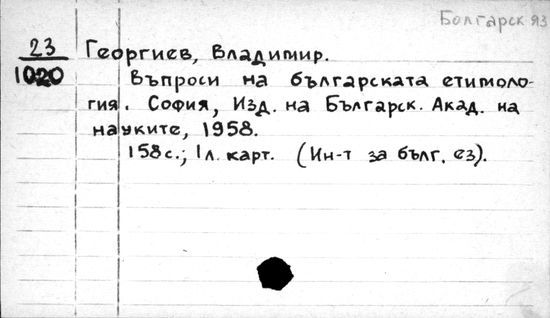 Болгарск яз
23
1020
Георгиев, Владимир.
Въпроси на българската етимоло-
гия. София, Изд. на Българск. Акад. на
науките, 1958.
158с.; 1л. карт. (Ин-т за бълг. ез).